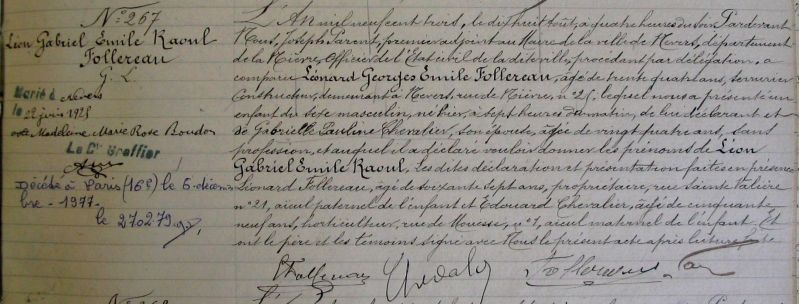 N° 267
Léon Gabriel Emile Raoul
Follereau
G. L.
Marié à Nevers
le 22 juin 1925
avec Madeleine Marie Rose Boudou
Le Cis Greffier
Décédé à Paris (16e) le 6 décem
bre - 1977 -
le 27 02 79
L'An mil neuf cent trois, le dix huit Août, à quatre heures du soir Pardevant
Nous, Joseph Parent, premier adjoint au Maire de la ville de Nevers, département
de la Nièvre, Officier de l'Etat civil de la dite ville, procédant par délégation, a
comparu Léonard Georges Emile Follereau, âgé de trente quatre ans, serrurier
Constructeur, demeurant à Nevers, rue de Nièvre, n° 25, lequel nous a présenté un
enfant du sexe masculin, né hier, à sept heures du matin, de lui déclarant et
de Gabrielle Pauline Chevalier, son épouse, âgée de vingt quatre ans, sans
profession, et auquel il a déclaré vouloir donner les prénoms de Léon
Gabriel Emile Raoul, les dites déclaration et présentation faites en présence
Léonard Follereau, âgé de soixante sept ans, propriétaire, rue Sainte Valière
n° 21, aïeul paternel de l'enfant et Edouard Chevalier, âgé de cinquante
neuf ans, horticulteur, rue de Mouesse, n° 1, aïeul maternel de l'enfant. Et
ont le père et les témoins signé avec Nous le présent acte après lecture faite
Follereau